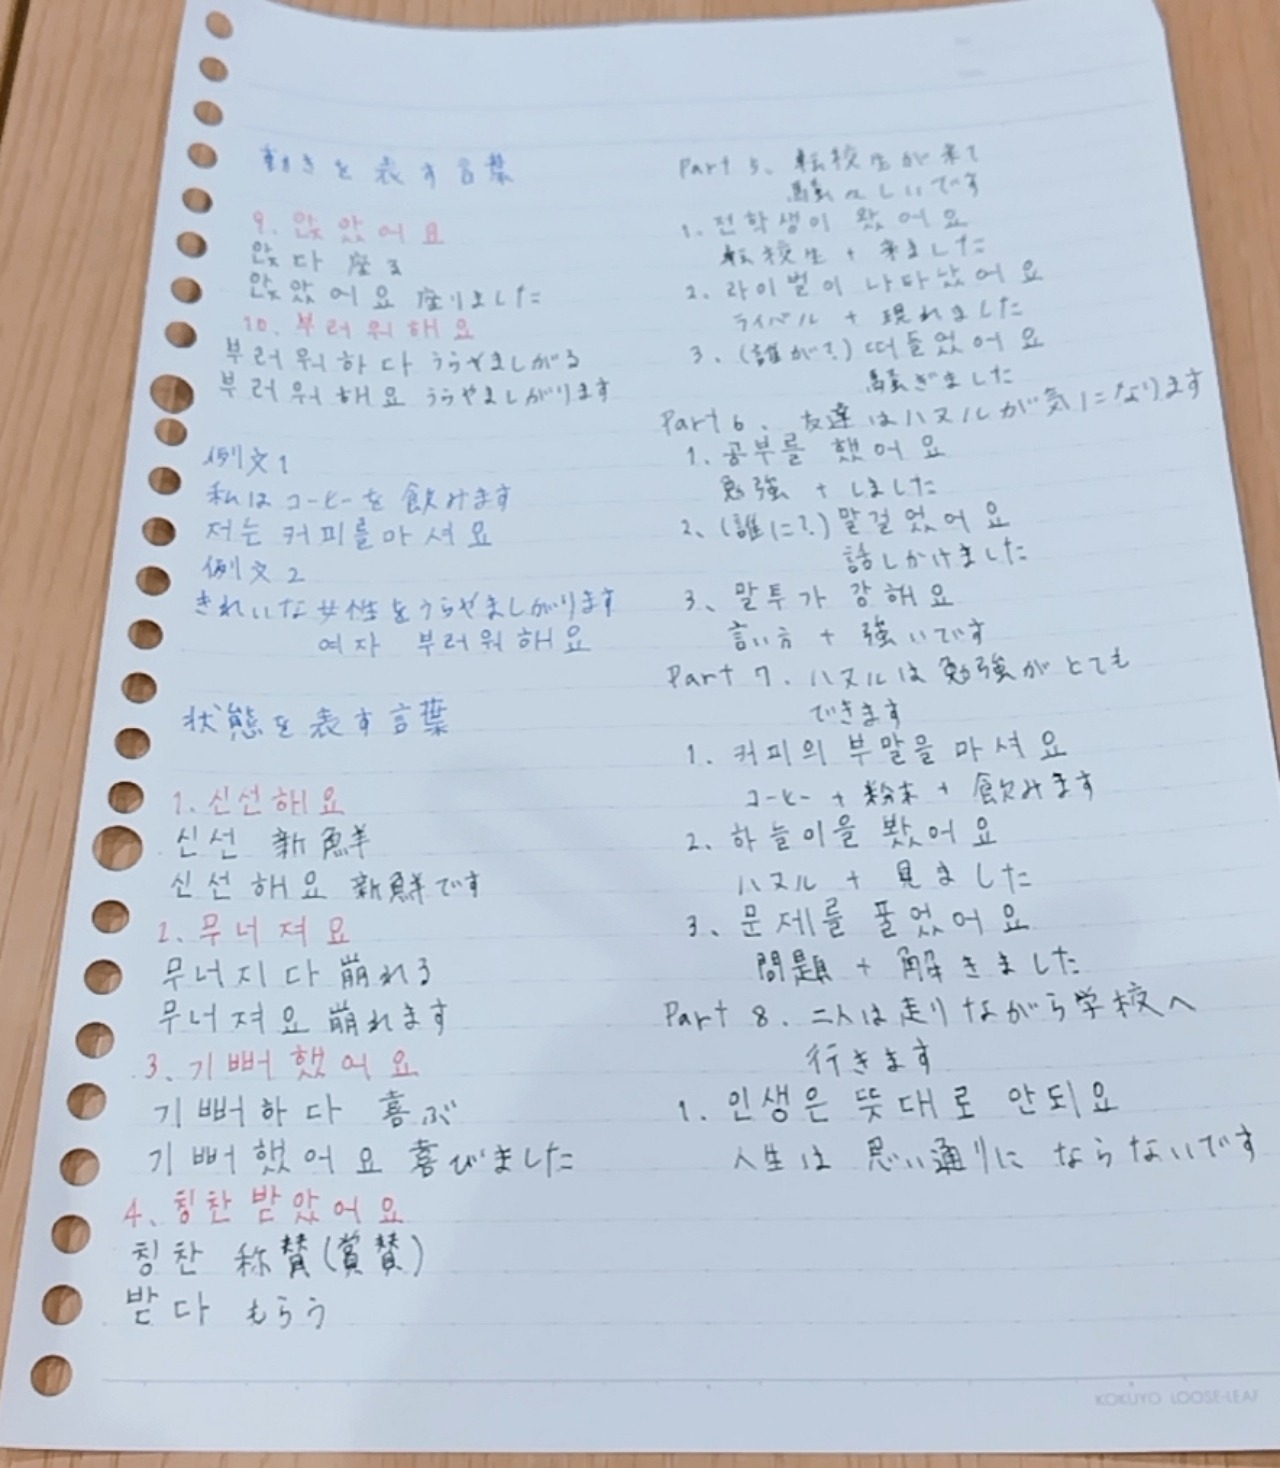 動きを表す言葉
9. 앉았어요
앉다 座る
앉았어요 座りました
10. 부러워해요
부러워하다 うらやましがる
부러워해요 うらやましがります
例文1
私はコーヒーを飲みます
저는 커피를마셔요
例文2
きれいな女性をうらやましがります
여자 부러워해요
状態を表す言葉
1. 신선해요
신선 新鮮
신선해요 新鮮です
2. 무너져요
무너지다 崩れる
무너져요 崩れます
3. 기뻐했어요
기뻐하다 喜ぶ
기뻐했어요 喜びました
4、칭찬받았어요
칭찬 称賛(賞賛)
받다 もらう
Part 5、転校生が来て
騒々しいです
1. 전학생이 왔어요
転校生 + 来ました
2. 라이벌이 나타났어요
ライバル + 現れました
3. (誰が?) 떠들었어요
騒ぎました
Part 6. 友達はハヌルが気になります
1. 공부를 했어요
勉強 + しました
2、(誰に?) 말걸었어요
話しかけました
3、말투가 강해요
言い方 + 強いです
Part 7. ハヌルは勉強がとても
できます
1. 커피의 부말을 마셔요
コーヒー + 粉末 + 飲みます
2. 하늘이을 봤어요
ハヌル + 見ました
3、문제를 풀었어요
問題 + 解きました
Part 8. 二人は走りながら学校へ
行きます
1. 인생은 뜻대로 안되요
人生は 思い通りに ならないです
KOKUYO LOOSE-LEAF